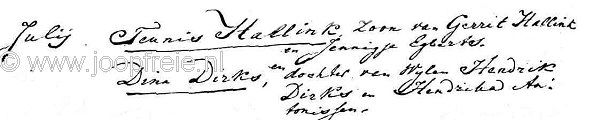 Julij Teunis Hallink, zoon van Gerrit Hallink
en Jennigje Egberts.
© www.joopfreie.nl
Dina Dirks, en dochter van Wylen Hendrik
Dirks en Hendrika An:
tonissen.